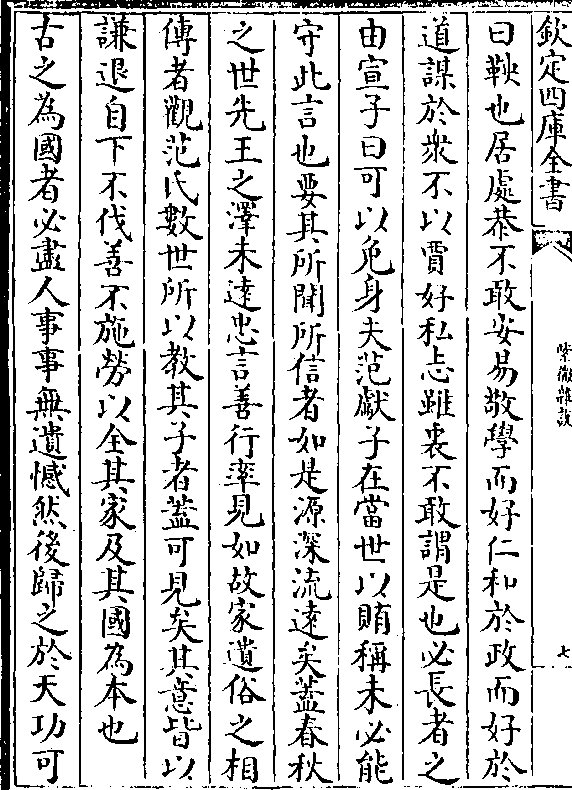 欽定四庫全書
紫微雜說
七
曰鞅也居處恭不敢安易敬學而好仁和於政而好於
道謀於衆不以賈好私志雖衷不敢謂是也必長者之
由宣子曰可以免身夫范獻子在當世以賄稱未必能
守此言也要其所聞所信者如是源深流遠矣蓋春秋
之世先王之澤未遠忠言善行率見如故家遺俗之相
傳者觀范氏數世所以教其子者蓋可見矣其意皆以
謙退自下不伐善不施勞以全其家及其國為本也
古之為國者必盡人事事無遺憾然後歸之於天功可